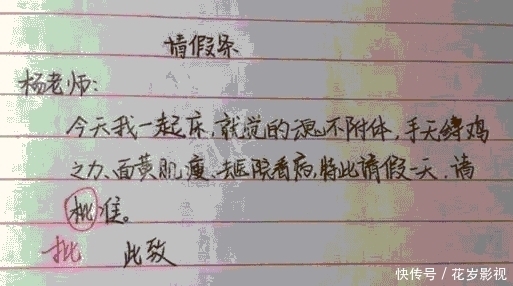 请假条
杨老师:
今天我一起床,就觉的魂不附体,手无缚鸡
之力、面黄肌瘦、去医院看病,特此请假二天,请
批准。
批 此致
快传号 / 花岁影视